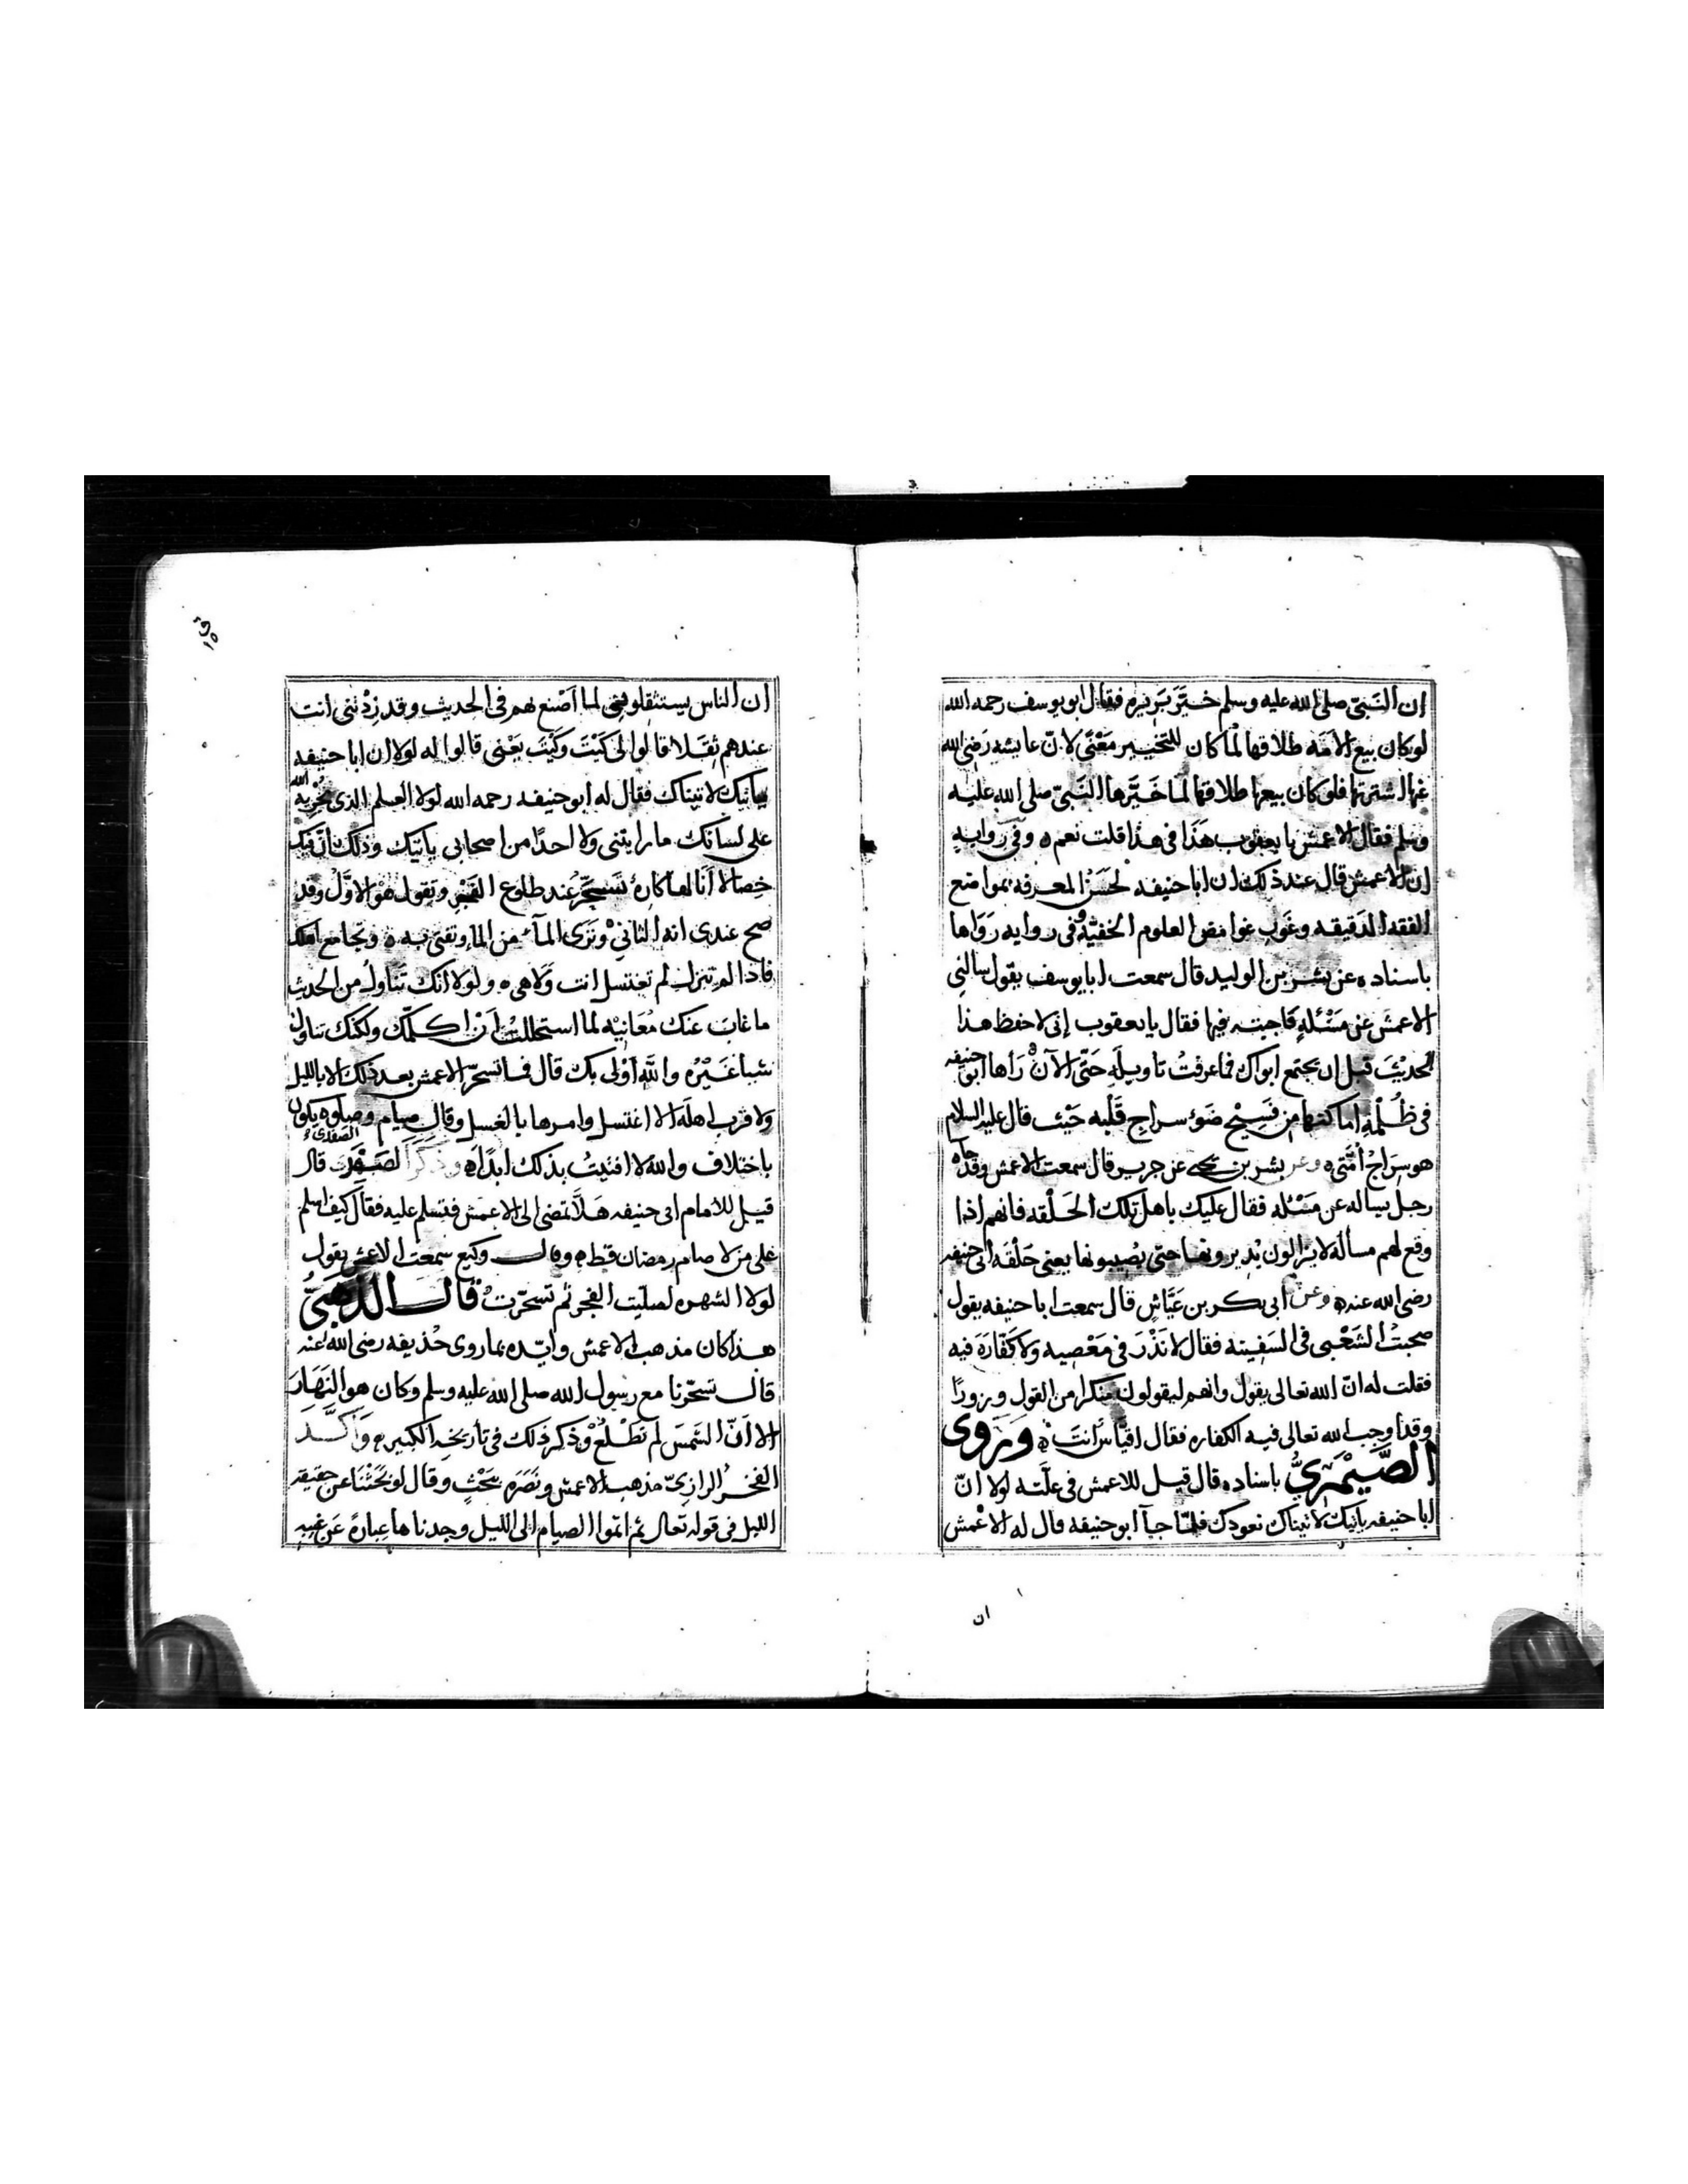 ان النَبيّ صلى الله عليه وسلم خيَّر بَرِيره فقال ابو يوسف رحمه الله
لو كان بيع الامَه طلاقها لما كان للتخيير مَعْنًى لانّ عايشه رَضي الله
عنها اشترتها فلو كان بيعها طلاقها لما خَيَّرها النَبيّ صلى الله عليه
وسلم فقال الاعمش يا يعقوب هَذا فى هذا قلت نعم ه وفى روايه
ان الاعمش قال عند ذلك ان ابا حنيفه لحَسَنُ المعرفه بمواضع
الفقه الدَقيقه وغَوَاب غوامض العلوم الخفيّه وفى روايه رَوَاها
باسناده عن بشر بن الوليد قال سمعت ابا يوسف يقول سالنى
الاعمش عن مَسْئلةٍ فاجبته فيها فقال يا يعقوب إنى لاحفظ هذا
الحديْثَ قبل ان يجتمع ابواك فما عرفتُ تاويلَه حَتّى الآن ه رَاها ابو حنيفه
فى ظُلْمَةِ اماكنها من فَسِيْح ضَوْء سراج قَلبه حَيْث قال عليه السلام
هو سِرَاجُ اُمّتى ه وعن بشر بن يحيى عن جرير قال سمعت الاعمش وقد جاه
رجل يساله عن مَسْئله فقال عليك باهل تلك الحَلْقه فانهم اذا
وقع لهم مسأله لا يزالون يُدِيرونها حتى يُصِيبونها يعنى حَلْقَه ابى حنيفه
رضى الله عنه ه وعن ابى بكر بن عَيَّاشٍ قال سمعت ابا حنيفه يقول
صحبتُ الشَعْبى فى السَفِينه فقال لا نَذْرَ فى مَعْصِيه ولا كَفّارَه فيه
فقلت له انّ الله تعالى يقول وانهم ليقولون منكرا من القول وزورًا
وقد اوجب الله تعالى فيه الكفاره فقال اقيَّاس انتَ ه وَرَوى
الصَّيْمَرِيُّ باسناده قال قيل للاعمش فى علَّته لولا انّ
ابا حنيفه ياتيك لاتيناك نعودك فلمّا جآ ابو حنيفه قال له الاعْمش
ان
ق ١٥
ان الناس يستثقلونِى لما اَصْنع لهم فى الحديث وقد زِدْتنى انت
عندهم ثِقَلا قالوا لى كَيْتَ وكَيْتَ يَعْنى قالوا له لولا ان ابا حنيفه
ياتيك لاتيناك فقال له ابو حنيفه رحمه الله لولا العلم الذى يُجْرِيه الله
على لسانك ما رايتنى ولا احدًا من اصحابى ياتيك وذلك انّ فيك
خِصالا اَنَا لها كارهٌ تَتَسَحَّرُ عند طلوع الفجر وتقول هُوَ الاوَّلُ وقد
صح عندى انه الثانِىْ وتَرى المآءَ من المآءِ وتفتى به ه وتجامع اهلك
فاذا لم تنزل لم تغتسل انت وَلاهى ه ولولا انك تَتَاولُ من الحديث
ما غابَ عنك مُعَانِيْه لما استحللتُ اَنْ اكلّمك ولكنك تتاولُ
شيا غَيْرُه واللّهُ اَوْلى بك قال فما تسحّر الاعمش بعد ذلك الا بالليل
ولا قرب اهلَه الا اغتسل وامرها بالغسل وقال صِيام وصلوه يكون
باختلاف والله لا افتيْتُ بذلك ابدًا ه وذكر الصفدى قال
قيل للامام ابى حنيفه هَلاَّ تمضى الى الاعمش فتسلم عليه فقال كيف اسلم
على من لا صام رمضان قط ه وقال وكيع سمعت الاعمش يقول
لولا الشهره لصلّيت الفجر ثم تسحّرت قال الذَهَبىُّ
هذا كان مذهب الاعمش وايّده بما روى حُذيفه رضى الله عنه
قال تسحّرنا مع رسول الله صلى الله عليه وسلم وكان هو النَهَارَ
الا اَنّ الشمسَ لم تَطْلُعْ وذكر ذلك فى تأريخه الكبير ه وَاكَّد
الفخرُ الرازىّ مذهب الاعمش ونَصَرَه بَحْثٍ وقال لو بَحَثْنَا عن حقيقه
الليل فى قوله تعالى ثم اتموا الصيام الى الليل وجدناها عِبارةً عَن غيبه